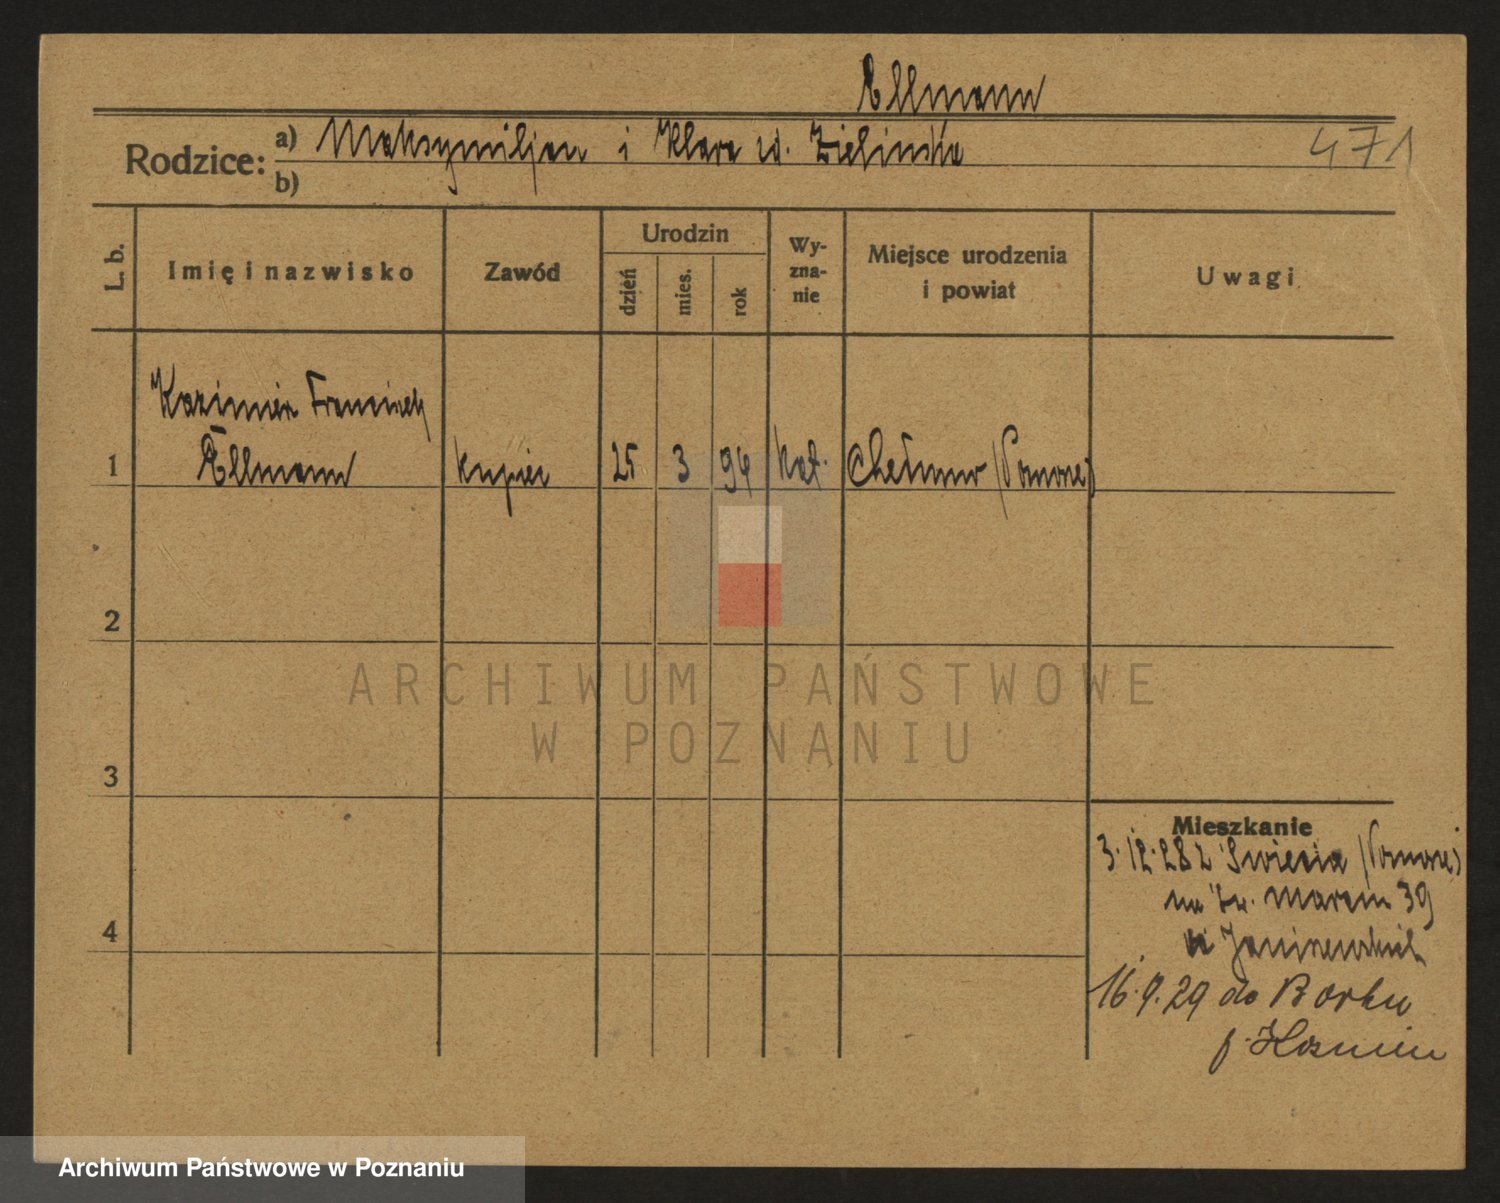 Ellmann
Rodzice: a) Maksymiljan i Klara ur. Zielińska
471
b)
L. b. Imię i nazwisko Zawód Urodzin dzień mies. rok Wy-zna-nie Miejsce urodzenia i powiat Uwagi
Kazimierz Franciszek
1 Ellmann kupiec 25 3 94 kat. Chełmno (Pomorze)
2
ARCHIWUM PAŃSTWOWE
W POZNANIU
3
Mieszkanie
3.12.28 z Świecia (Pomorze)
na Św. Marcin 39
Janiszewskich
4
16.9.29 do Borku
p. Koźmin
Archiwum Państwowe w Poznaniu